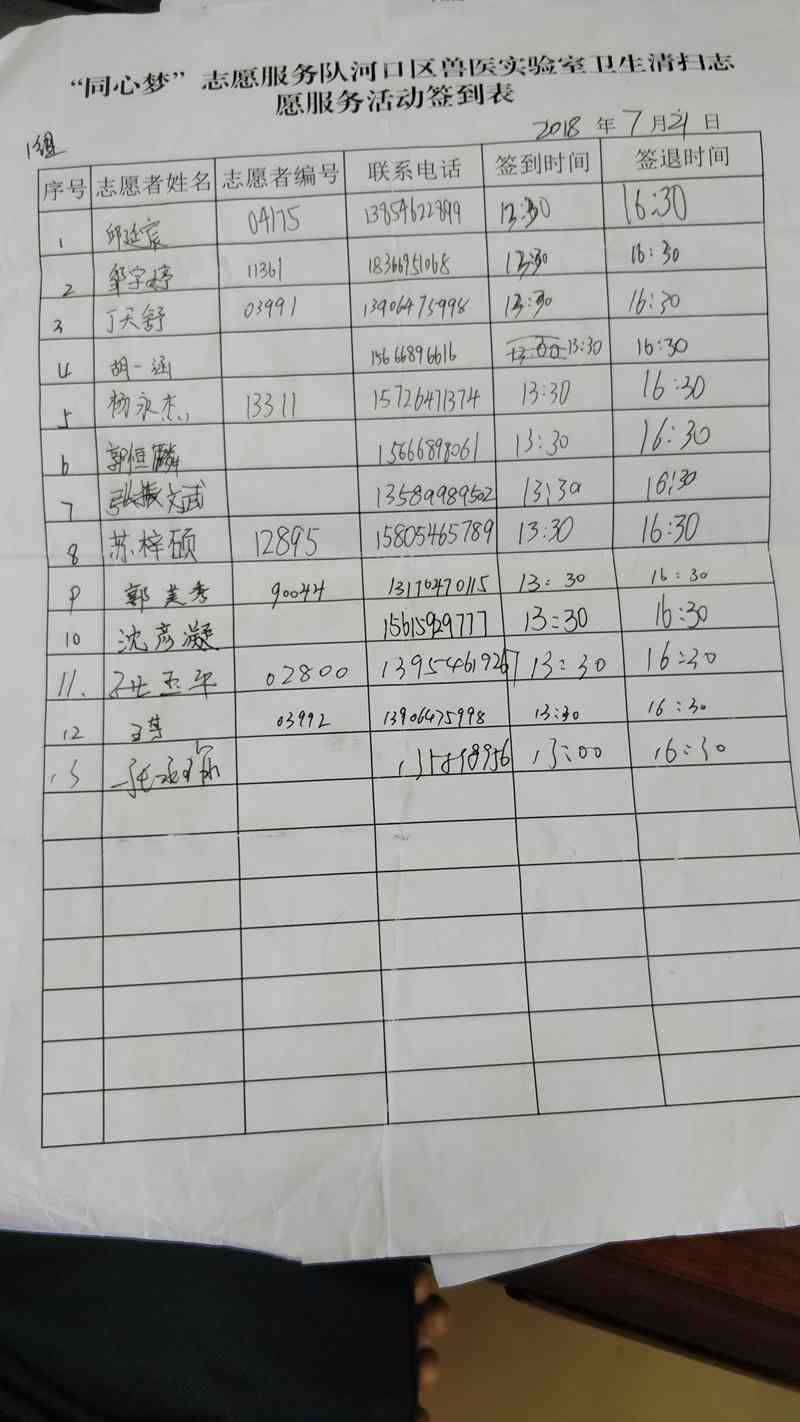 “同心梦”志愿服务队河口区兽医实验室卫生清扫志
愿服务活动签到表
1组 2018 年 7 月 21 日
序号 志愿者姓名 志愿者编号 联系电话 签到时间 签退时间
1 邱延宸 04175 13854622899 13:30 16:30
2 邹宇婷 11361 18366951068 13:30 16:30
3 丁天舒 03991 13906475998 13:30 16:30
4 胡一涵 15666896616 13:30 16:30
5 杨永杰 13311 15726471374 13:30 16:30
6 郭恒麟 15666898061 13:30 16:30
7 张振文武 13589989502 13:30 16:30
8 苏梓硕 12895 15805465789 13:30 16:30
9 郭美秀 90044 13170470115 13:30 16:30
10 沈彦凝 15615929777 13:30 16:30
11. 玉平 02800 13954619267 13:30 16:30
12 03992 13906475998 13:30 16:30
13 13:00 16:30